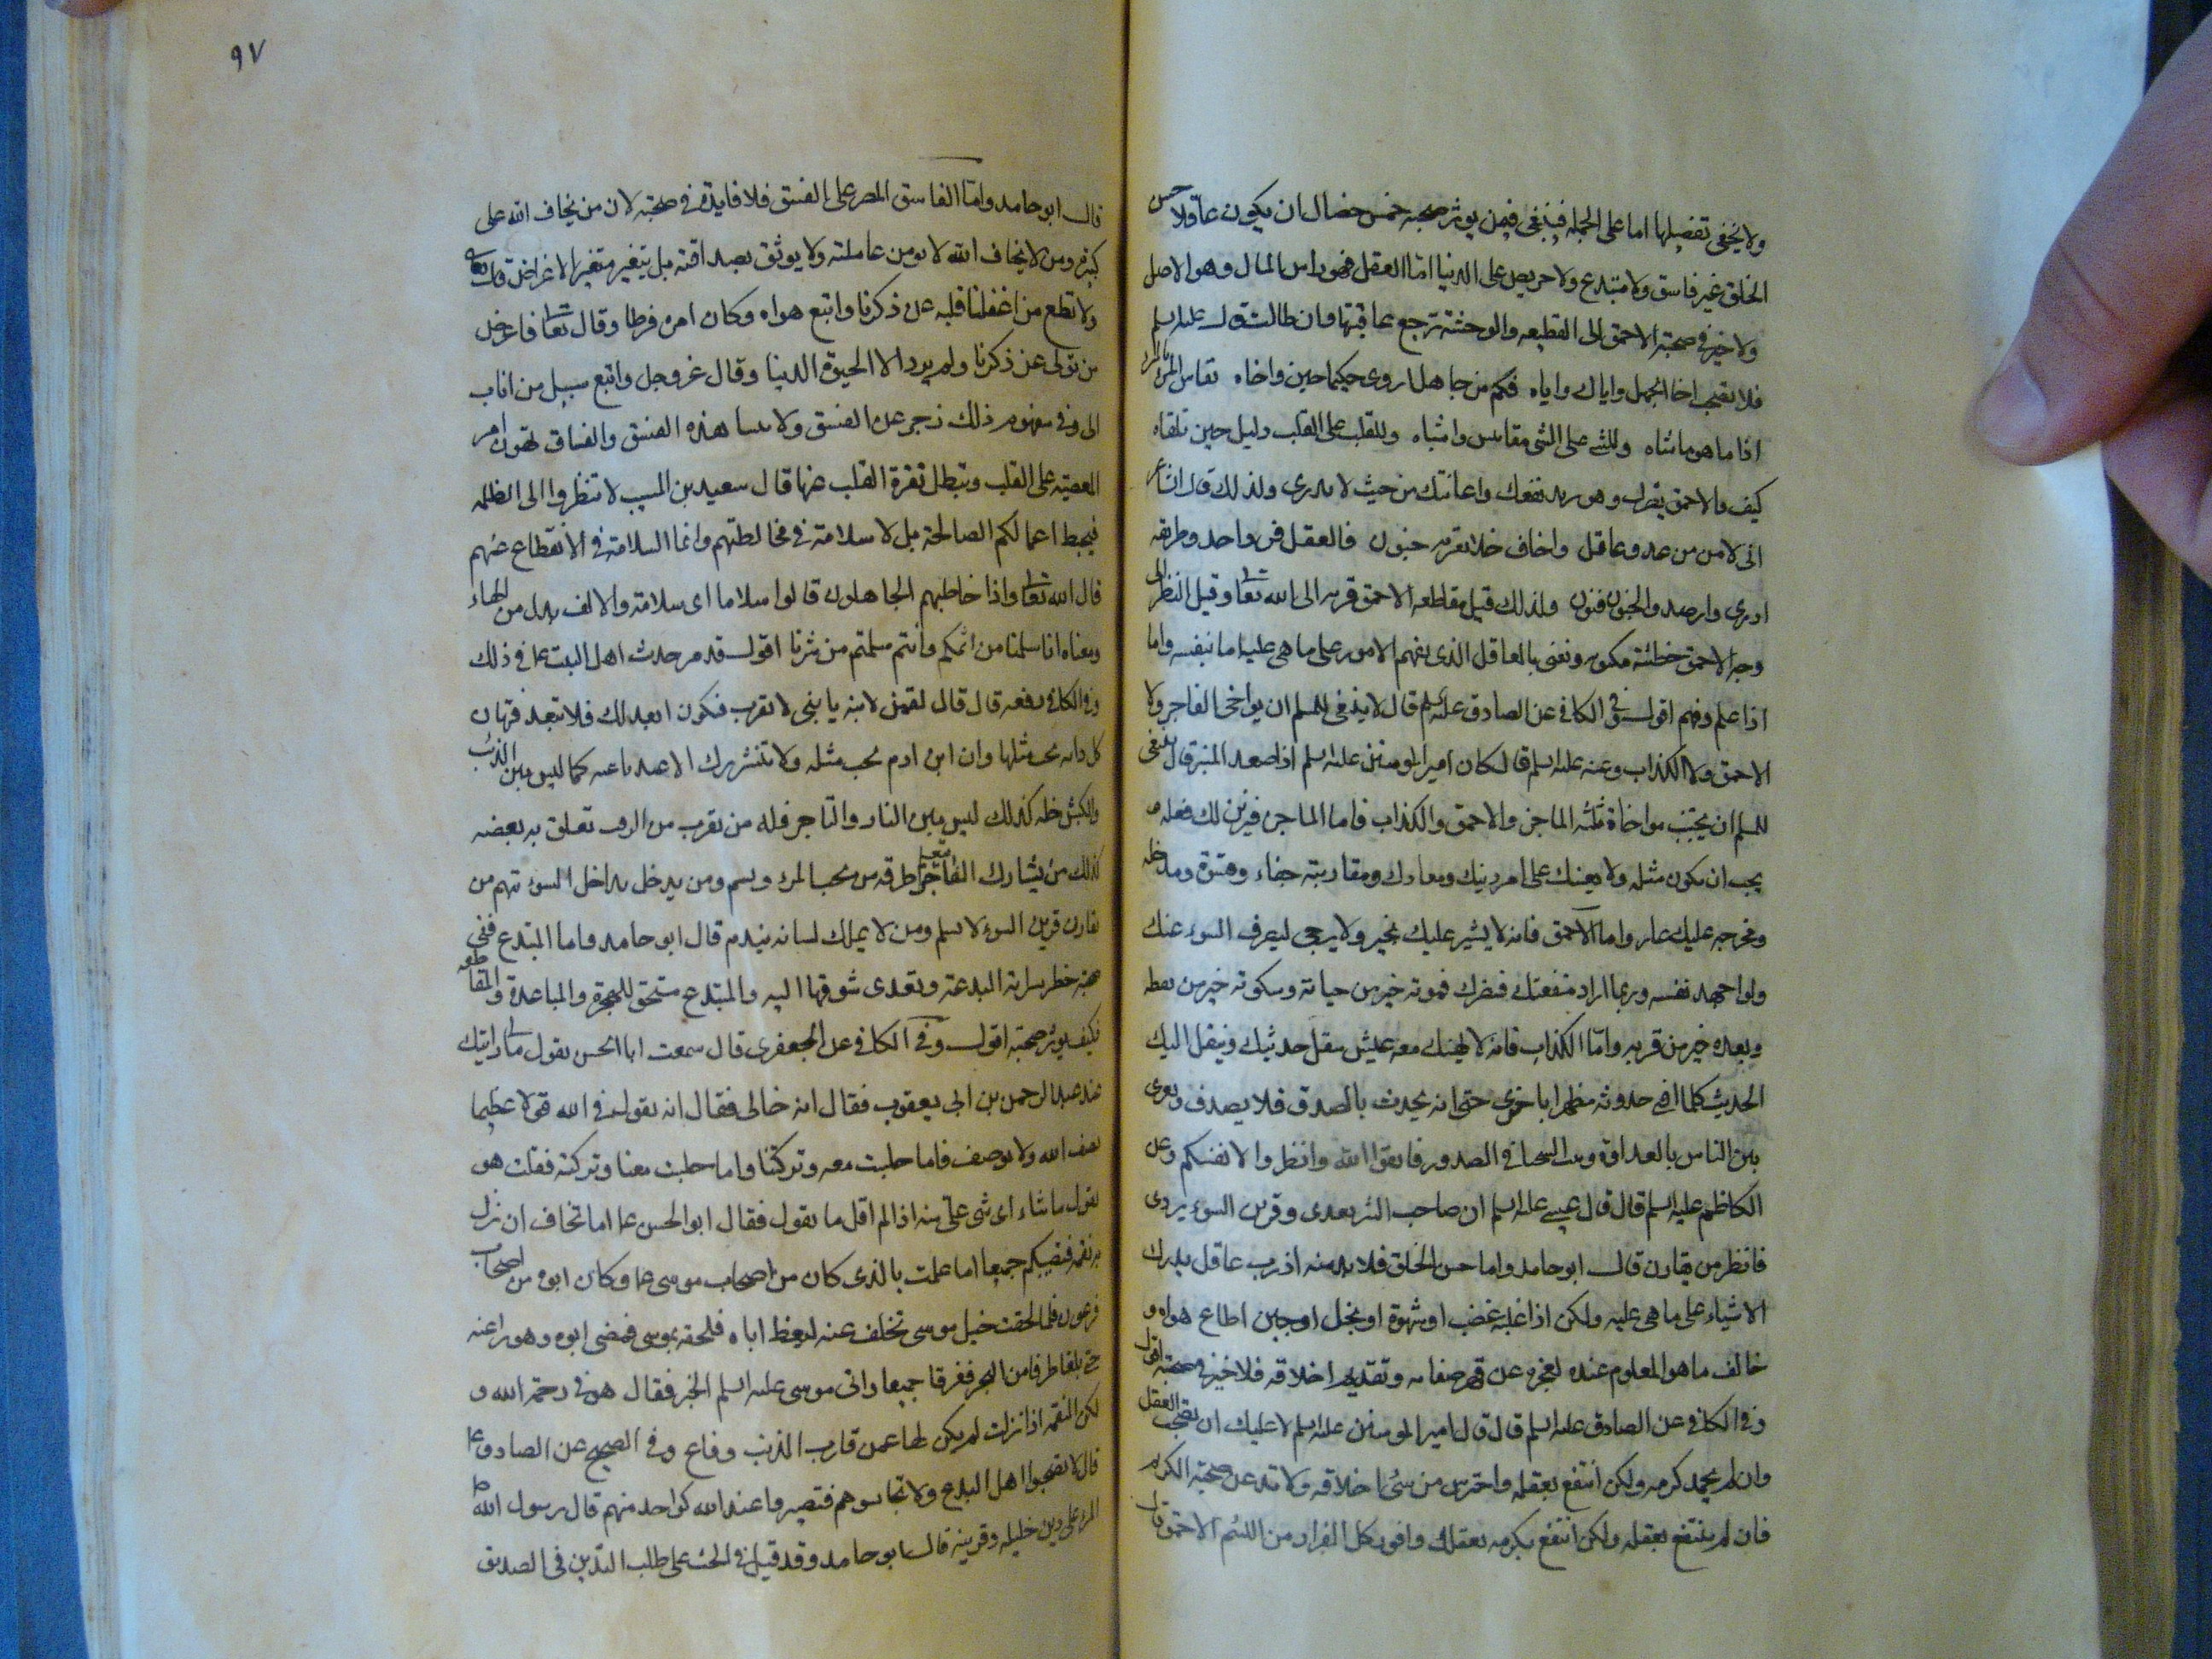 ولا يخفى تفصيلها اما على الجمله فينبغى فيمن يوثر صحبته خمس خصال ان يكون عاقلا حسن
الخلق غير فاسق ولا مبتدع ولا حريص على الدنيا امّا العقل فهو راس المال وهو الاصل
ولا خير فى صحبة الاحمق الى القطيعه والوحشة ترجع عاقبتها وان طالت عليه السلم
فلا تصحب اخا الجهل واياك واياه فكم من جاهل اروى حكيما حين واخاه تقاس المرء بالمرء
اذا ما هو ما شاه وللشى على الشى مقاييس واشباه وللقلب على القلب دليل حين تلقاه
كيف والاحمق يضرك وهو يريد نفعك واعانتك من حيث لا يدرى ولذلك قال الشاعر
انى لامن من عدو عاقل واخاف خلا يعتريه جنون فالعقل فن واحد وطريقه
ادرى وارصد والجنون فنون ولذلك قيل مقاطعه الاحمق قربه الى الله تعا وقيل النظر الى
وجه الاحمق خطئة مكتوبه ونعنى بالعاقل الذى يفهم الامور على ما هى عليه اما بنفسه واما
اذا علم وفهم اقول وفى الكافى عن الصادق عليه السلم قال لا ينبغى للمسلم ان يواخى الفاجر ولا
الاحمق ولا الكذاب وعنه عليه السلم قال كان امير المومنين عليه السلم اذا صعد المنبر قال ينبغى
للمسلم ان يجتنب مواخاة ثلثه الماجن والاحمق والكذاب فاما الماجن فيزين لك فعله و
يحب ان تكون مثله ولا يعينك على امر دينك ومعادك ومقاربته جفاء وقسوة ومدخله
ومخرجه عليك عار واما الاحمق فانه لا يشير عليك بخير ولا يرجى ليصرف السوء عنك
ولو اجهد نفسه وربما اراد منفعتك فيضرك فموته خير من حياته وسكوته خير من نطقه
وبعده خير من قربه وامّا الكذاب فانه لا يهنك معه عيش ينقل حديثك وينقل اليك
الحديث كلما افنى حدوثه مطرا باخرى حتى انه يحدث بالصدق فلا يصدق ويغرى
بين الناس بالعداوة وينبت السخائم فى الصدور فاتقوا الله وانظروا لانفسكم وعن
الكاظم عليه السلم قال قال عيسى عليه السلم ان صاحب الشر يعدى وقرين السوء يردى
فانظر من يقارن قال ابو حامد واما حسن الخلق فلا بد منه اذ رب عاقل يدرك
الاشياء على ما هى عليه ولكن اذا غلبه غضب او شهوة او بخل او جبن اطاع هواه و
خالف ما هو المعلوم عنده لعجزه عن قهر صفاته وتقديم اخلاقه فلا خير فى صحبته اقول
وفى الكافى عن الصادق عليه السلم قال قال امير المومنين عليه السلم لا عليك ان تصحب العقل
وان لم يحمد كرمه ولكن انتفع بعقله واحترس من سئ اخلاقه ولا تدعن صحبة الكريم
فان لم ينتفع بعقله ولكن انتفع بكرمه بعقلك وافرر كل الفرار من اللئيم الاحمق قال
٩٧
قال ابو حامد وامّا الفاسق المصر على الفسق فلا فايدة فى صحبته لان من يخاف الله على
كبيره ومن لا يخاف الله لا يومن عاملته ولا يوثق بصداقته بل يتغير متغير الاغراض قال تعا
ولا تطع من اغفلنا قلبه عن ذكرنا واتبع هواه وكان امره فرطا وقال تعا فاعرض
من تولى عن ذكرنا ولم يرد الا الحيوة الدنيا وقال عز وجل واتبع سبيل من اناب
الى وفى مفهوم ذلك زجر عن الفسق ولا مشاهده الفسق والفساق تهون امر
المعصيه على القلب وتبطل نفرة القلب عنها قال سعيد بن المسيب لا تنظروا الى الظلمه
فيحبط اعمالكم الصالحة بل لا سلامة فى مخالطتهم وانما السلامة فى الانقطاع عنهم
قال الله تعا واذا خاطبهم الجاهلون قالوا سلاما اى سلامة والالف بدل من الهاء
ومعناه انا سلمنا من اثمكم وانتم سلمتم من شرنا اقول قد مر حديث اهل البيت عا فى ذلك
وفى الكافى رفعه قال قال لقمن لابنه يا بنى لا تقرب فتكون ابعد لك فلا تبعد فتهان
كل دابه تحب مثلها وان ابن ادم يحب مثله ولا تنشر بزك الا عند باغيه كما ليس بين الذئب
والكبش خله كذلك ليس بين البار والفاجر خله من يقرب من الزفت تعلق به بعضه
كذلك من يشارك الفاجر يتعلم طرقه من يحب المراء يشتم ومن يدخل مداخل السوء يتهم من
يقارن قرين السوء لا يسلم ومن لا يملك لسانه يندم قال ابو حامد واما المبتدع ففى
صحبته خطر سراية البدعة وتعدى شومها اليه والمبتدع مستحق للهجرة والمباعدة والمقاطعه
فكيف يوثر صحبته اقول وفى الكافى عن الجعفرى قال سمعت ابا الحسن يقول ما لى رايتك
عند عبد الرحمن بن ابى يعقوب فقال انه خالى فقال انه يقول فى الله قولا عظيما
يصف الله ولا يوصف فاما جلست معه وتركتنا واما جلست معنا وتركته فقلت هو
يقول ما شاء اى شئ علىّ منه اذا لم اقل ما يقول فقال ابو الحسن عا اما تخاف ان تنزل
به نقمه فتصيبكم جميعا اما علمت بالذى كان من اصحاب موسى عا وكان ابوه من اصحاب
فرعون فلما لحقت خيل موسى تخلف عنه ليعظ اباه فلحقه بموسى فمضى ابوه وهو يراغمه
حتى بلغا طرفا من البحر فغرقا جميعا واتى موسى عليه السلم الخبر فقال هو فى رحمة الله و
لكن النقمه اذا نزلت لم يكن لها عمن قارب المذنب دفاع وفى الصحيح عن الصادق عا
قال لا تصحبوا اهل البدع ولا تجالسوهم فتصيروا عند الله كواحد منهم قال رسول الله ص
المرء على دين خليله وقرينه قال ابو حامد وقد قيل فى الحث على طلب التدين فى الصديق